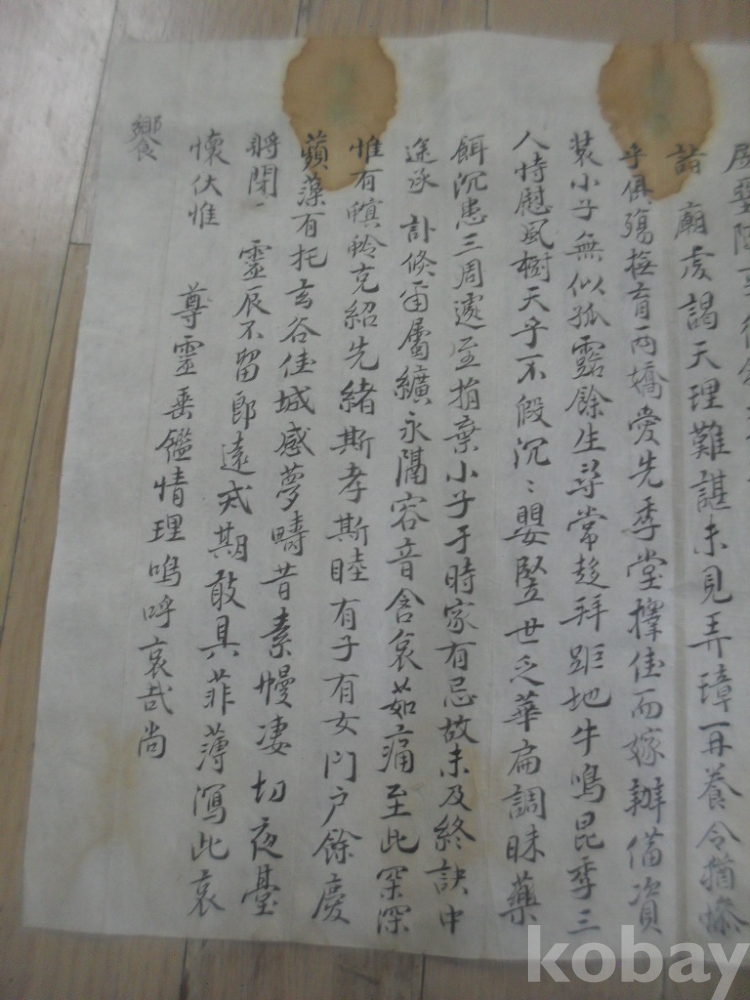 詣 廟虔謁天理難諶未見弄璋再養令猶
乎俱殤梅育兩嬌愛先季堂擇佳而嫁辦備資
裝小子無似孤露餘生尋常趍拜距地牛鳴昆季三
人恃慰風樹天乎不假沉〻嬰竪世乏華扁調昧藥
餌沉患三周遽至捐棄小子于時家有忌故未及終訣中
途承 訃倐雷屬纊永隔容音含哀茹痛至此罙深
惟有螟蛉克紹先緖斯孝斯睦有子有女門户餘慶
蘋藻有托玄谷佳城感夢疇昔素幔凄切夜臺
將閉 靈辰不留郎遠式期敢具菲薄瀉此哀
懷伏惟 尊靈垂鑑情理嗚呼哀哉尚
饗
kobay